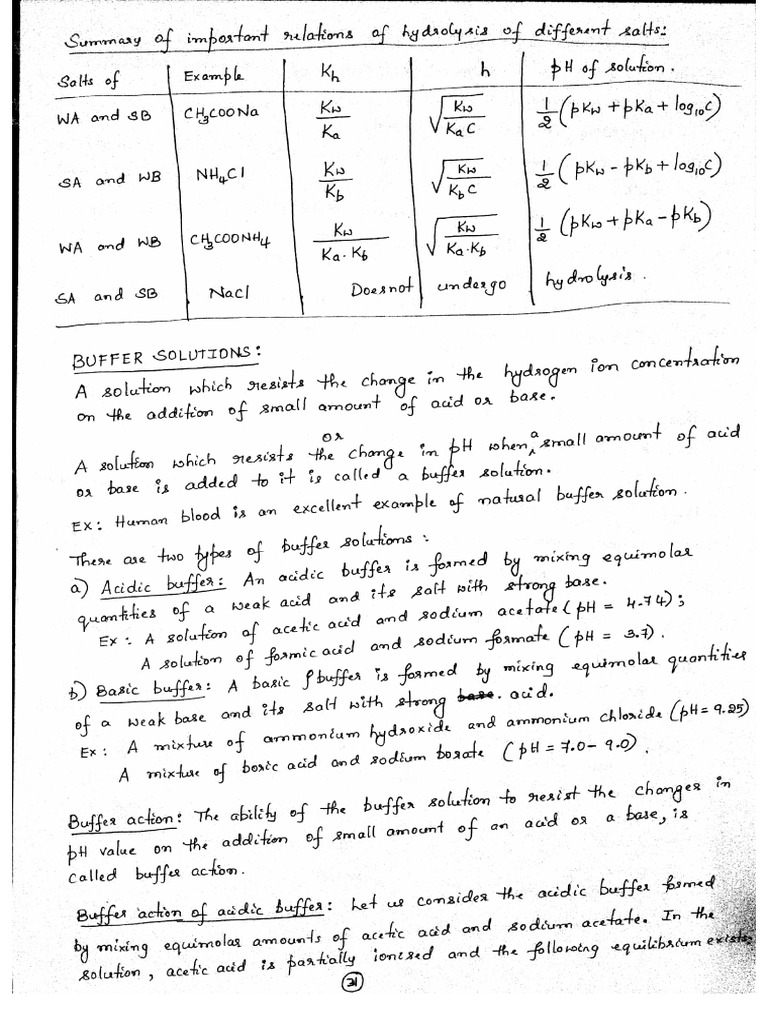 Summary of important relations of hydrolysis of different salts:
Salts of Example Kh h pH of solution.
WA and SB CH3COONa Kw/Ka √(Kw/KaC) 1/2 (pKw + pKa + log10C)
SA and WB NH4Cl Kw/Kb √(Kw/KbC) 1/2 (pKw - pKb + log10C)
WA and WB CH3COONH4 Kw/Ka.Kb √(Kw/Ka.Kb) 1/2 (pKw + pKa - pKb)
SA and SB Nacl Doesnot undergo hydrolysis.
BUFFER SOLUTIONS:
A solution which resists the change in the hydrogen ion concentration
on the addition of small amount of acid or base.
or
A solution which resists the change in pH when a small amount of acid
or base is added to it is called a buffer solution.
EX: Human blood is an excellent example of natural buffer solution.
There are two types of buffer solutions:
a) Acidic buffer: An acidic buffer is formed by mixing equimolar
quantities of a weak acid and its salt with strong base.
Ex: A solution of acetic acid and sodium acetate (pH = 4.74);
A solution of formic acid and sodium formate (pH = 3.7).
b) Basic buffer: A basic buffer is formed by mixing equimolar quantities
of a weak base and its salt with strong base. acid.
Ex: A mixture of ammonium hydroxide and ammonium chloride (pH = 9.25)
A mixture of boric acid and sodium borate (pH = 7.0 - 9.0).
Buffer action: The ability of the buffer solution to resist the changes in
pH value on the addition of small amount of an acid or a base, is
called buffer action.
Buffer action of acidic buffer: Let us consider the acidic buffer formed
by mixing equimolar amounts of acetic acid and sodium acetate. In the
solution, acetic acid is partially ionised and the following equilibrium exists:
21